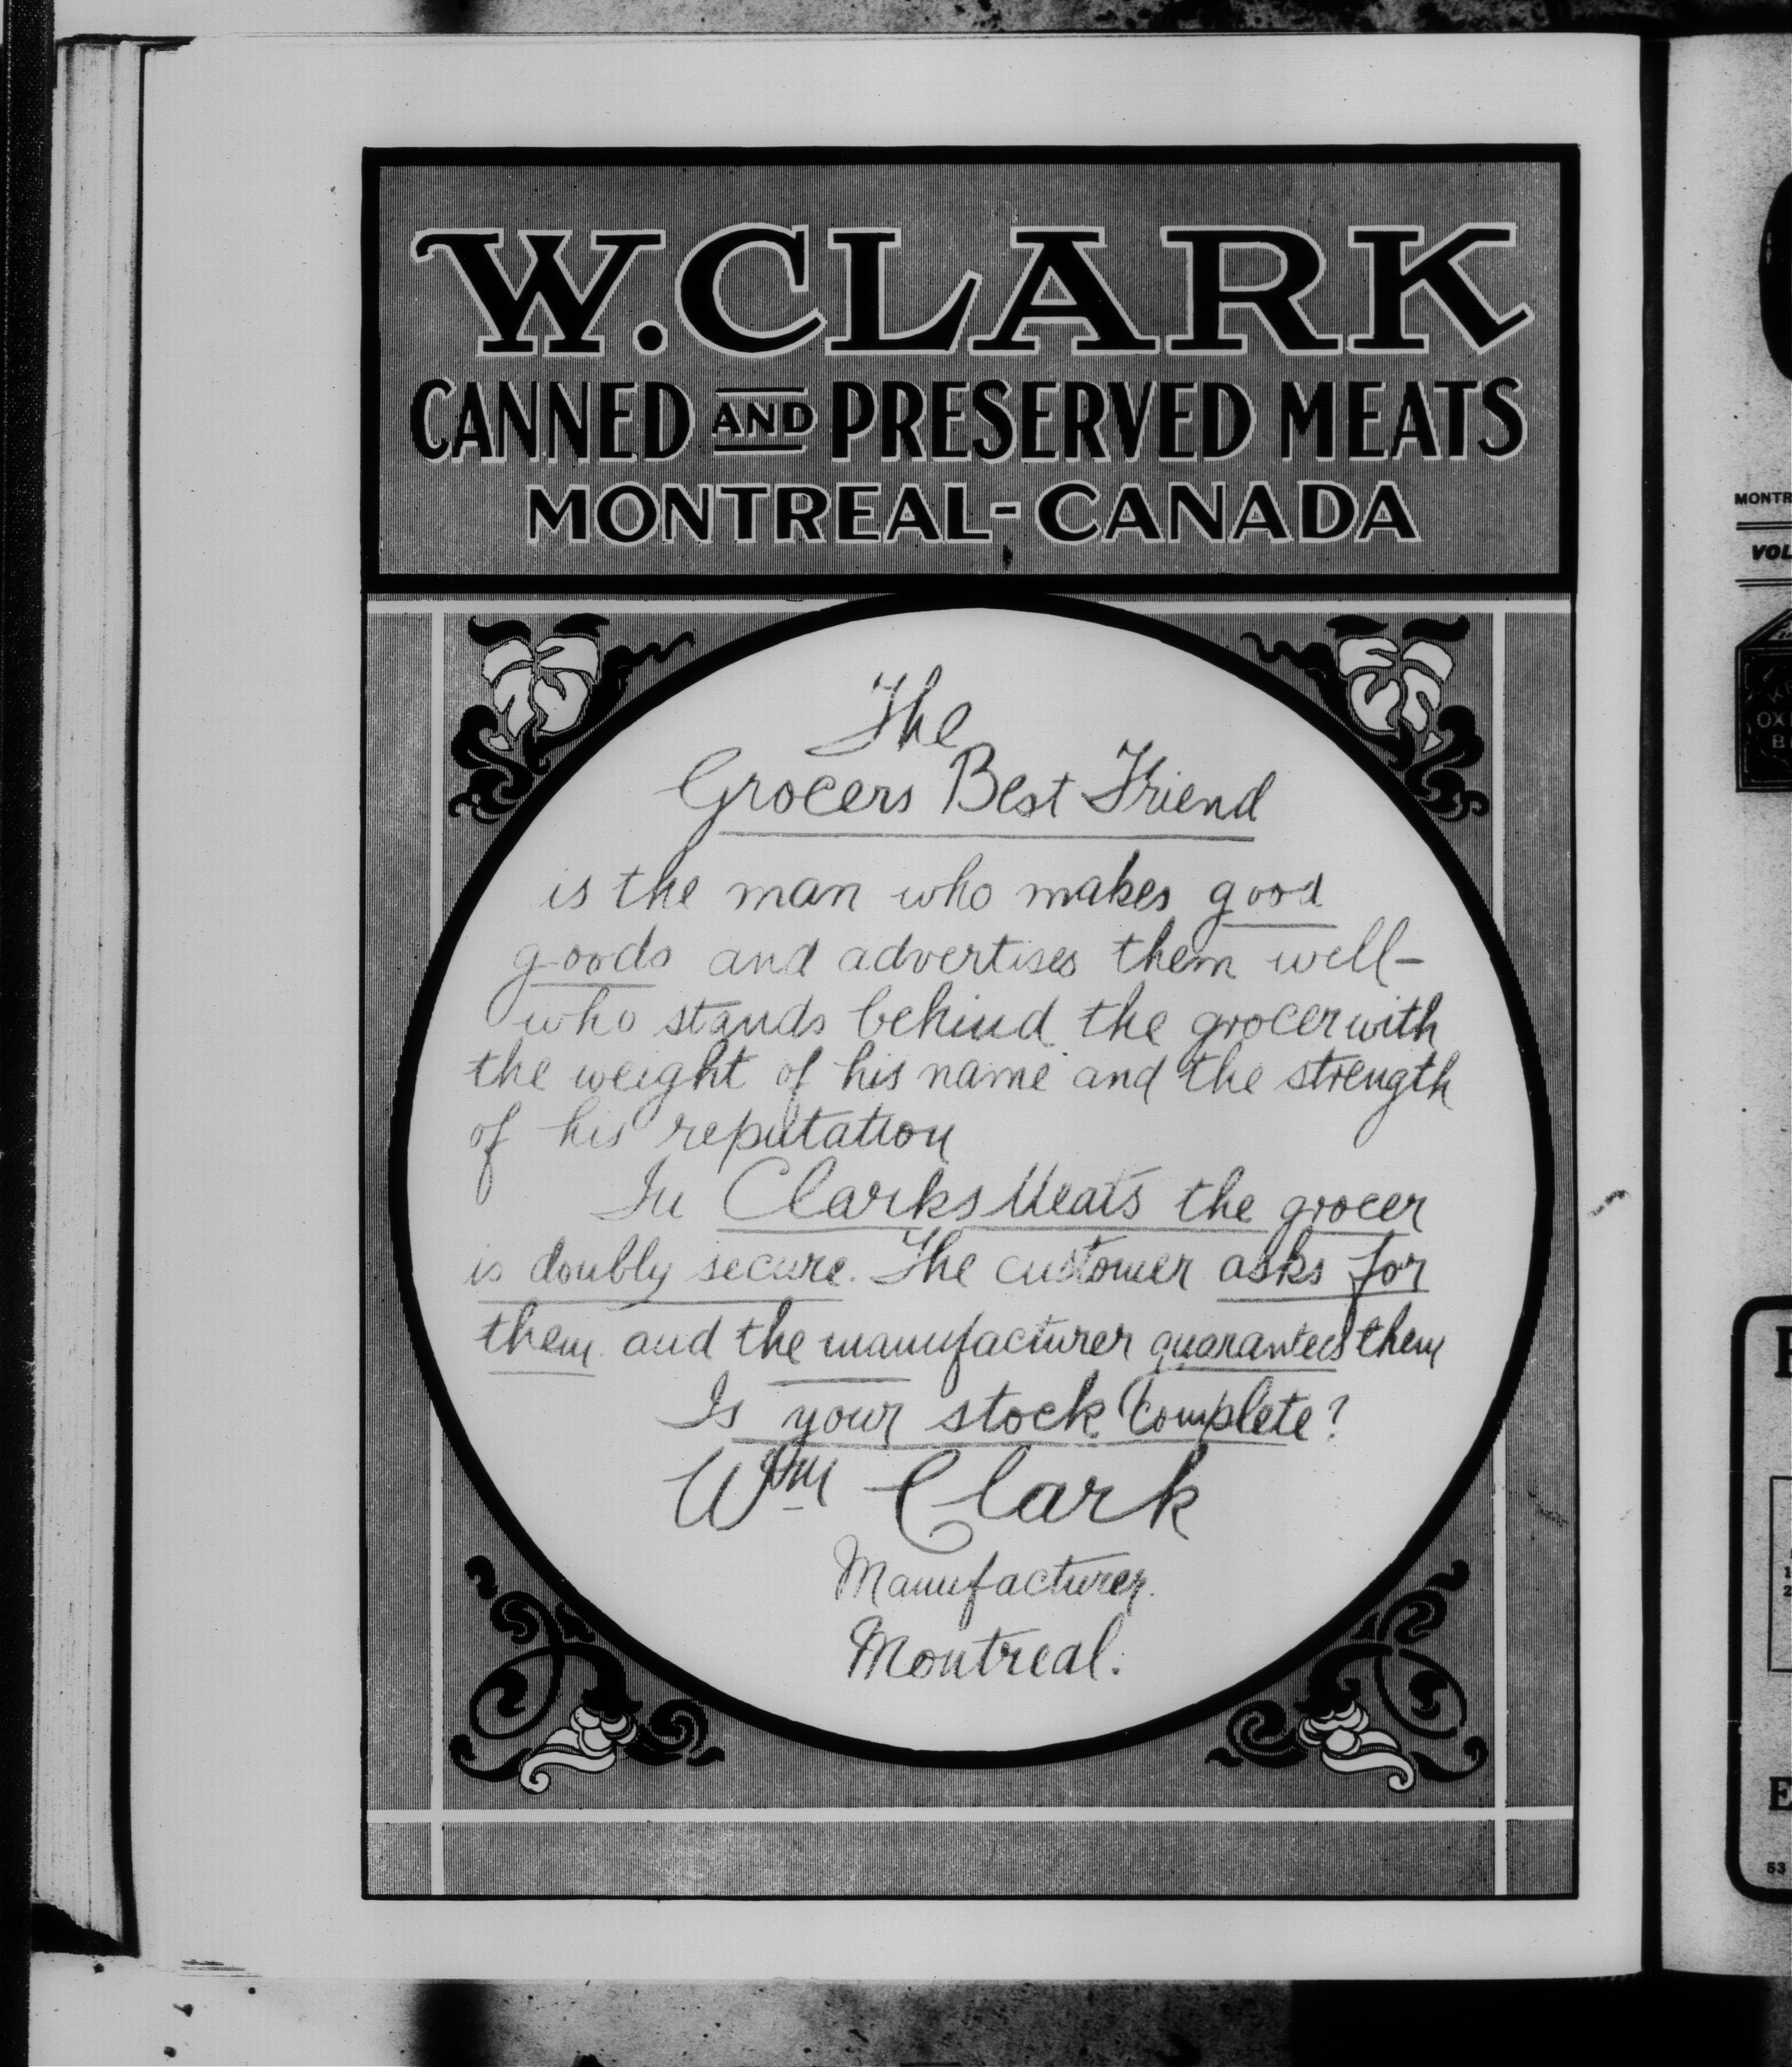 W. CLARK
CANNED AND PRESERVED MEATS
MONTREAL-CANADA
The
Grocers Best Friend
is the man who makes good
goods and advertises them well-
who stands behind the grocer with
the weight of his name and the strength
of his reputation
In Clarks Meats the grocer
is doubly secure. The customer asks for
them and the manufacturer guarantees them
Is your stock Complete?
Wm Clark
Manufacturer.
Montreal.
MONTR
VOL
OX
B
E
53